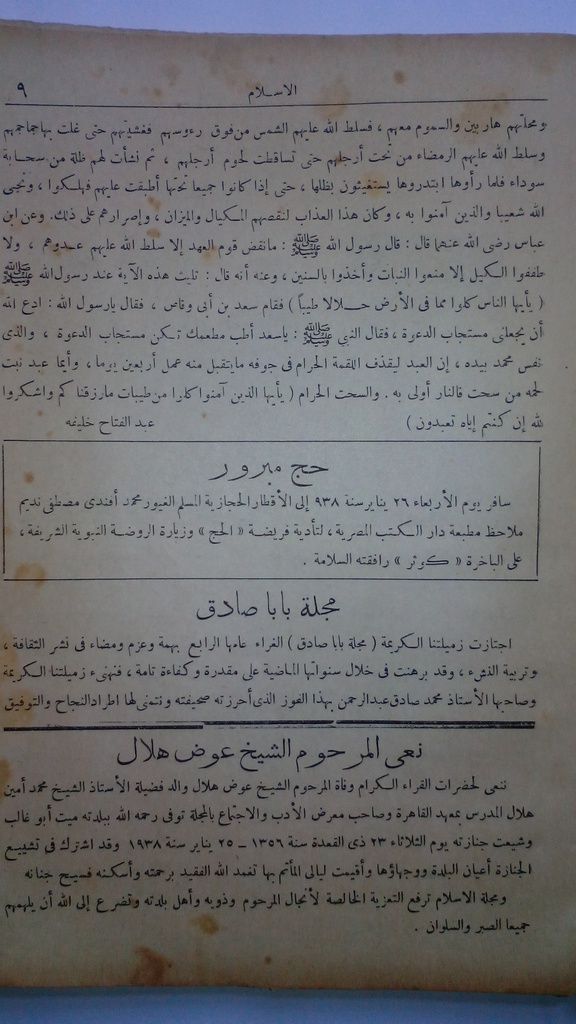 الاسلام
٩
ومحلتهم هاربين والسموم معهم ، فسلط الله عليهم الشمس من فوق رءوسهم فغشيتهم حتى غلت بها جماجمهم
وسلط الله عليهم الرمضاء من تحت أرجلهم حتى تساقطت لحوم أرجلهم ، ثم نشأت لهم ظلة من سحابة
سوداء فلما رأوها ابتدروها يستغيثون بظلها ، حتى إذا كانوا جميعا تحتها أطبقت عليهم فهلكوا ، ونجى
الله شعيبا والذين آمنوا به ، وكان هذا العذاب لنقصهم المكيال والميزان ، وإصرارهم على ذلك. وعن ابن
عباس رضى الله عنهما قال : قال رسول الله ﷺ : مانقض قوم العهد إلا سلط الله عليهم عدوهم ، ولا
طففوا الكيل إلا منعوا النبات وأخذوا بالسنين ، وعنه أنه قال : تليت هذه الآية عند رسول الله ﷺ
( يأيها الناس كلوا مما فى الأرض حلالا طيباً ) فقام سعد بن أبى وقاص ، فقال يارسول الله : ادع الله
أن يجعلنى مستجاب الدعوة ، فقال النبي ﷺ : ياسعد أطب مطعمك تكن مستجاب الدعوة ، والذى
نفس محمد بيده ، إن العبد ليقذف اللقمة الحرام فى جوفه مايتقبل منه عمل أربعين يوما ، وأيما عبد نبت
لحمه من سحت فالنار أولى به . والسحت الحرام ( يأيها الذين آمنوا كلوا من طيبات مارزقنا كم واشكروا
لله إن كنتم إياه تعبدون )
عبد الفتاح خليفه
حج مبرور
سافر يوم الأربعاء ٢٦ يناير سنة ٩٣٨ إلى الأقطار الحجازية المسلم الغيور محمد أفندى مصطفى نديم
ملاحظ مطبعة دار الكتب المصرية ، لتأدية فريضة « الحج » وزيارة الروضة النبوية الشريفة ،
على الباخرة « كوثر » رافقته السلامة .
مجلة بابا صادق
اجتازت زميلتنا الكريمة ( مجلة بابا صادق ) الغراء عامها الرابع بهمة وعزم ومضاء فى نشر الثقافة ،
وتربية النشء ، وقد برهنت فى خلال سنواتها الماضية على مقدرة وكفاءة تامة ، فنهنىء زميلتنا الكريمة
وصاحبها الأستاذ محمد صادق عبدالرحمن بهذا الفوز الذى أحرزته صحيفته ونتمنى لها اطراد النجاح والتوفيق
نعى المرحوم الشيخ عوض هلال
ننعى لحضرات القراء الكرام وفاة المرحوم الشيخ عوض هلال والد فضيلة الأستاذ الشيخ محمد أمين
هلال المدرس بمعهد القاهرة وصاحب معرض الأدب والاجتماع بالمجلة توفى رحمه الله ببلدته ميت أبو غالب
وشيعت جنازته يوم الثلاثاء ٢٣ ذى القعدة سنة ١٣٥٦ ــ ٢٥ يناير سنة ١٩٣٨ وقد اشترك فى تشييع
الجنازة أعيان البلدة ووجهاؤها وأقيمت ليالى المأتم بها تغمد الله الفقيد برحمته وأسكنه فسيح جنانه
ومجلة الاسلام ترفع التعزية الخالصة لأنجال المرحوم وذويه وأهل بلدته وتضرع إلى الله أن يلهمهم
جميعا الصبر والسلوان .